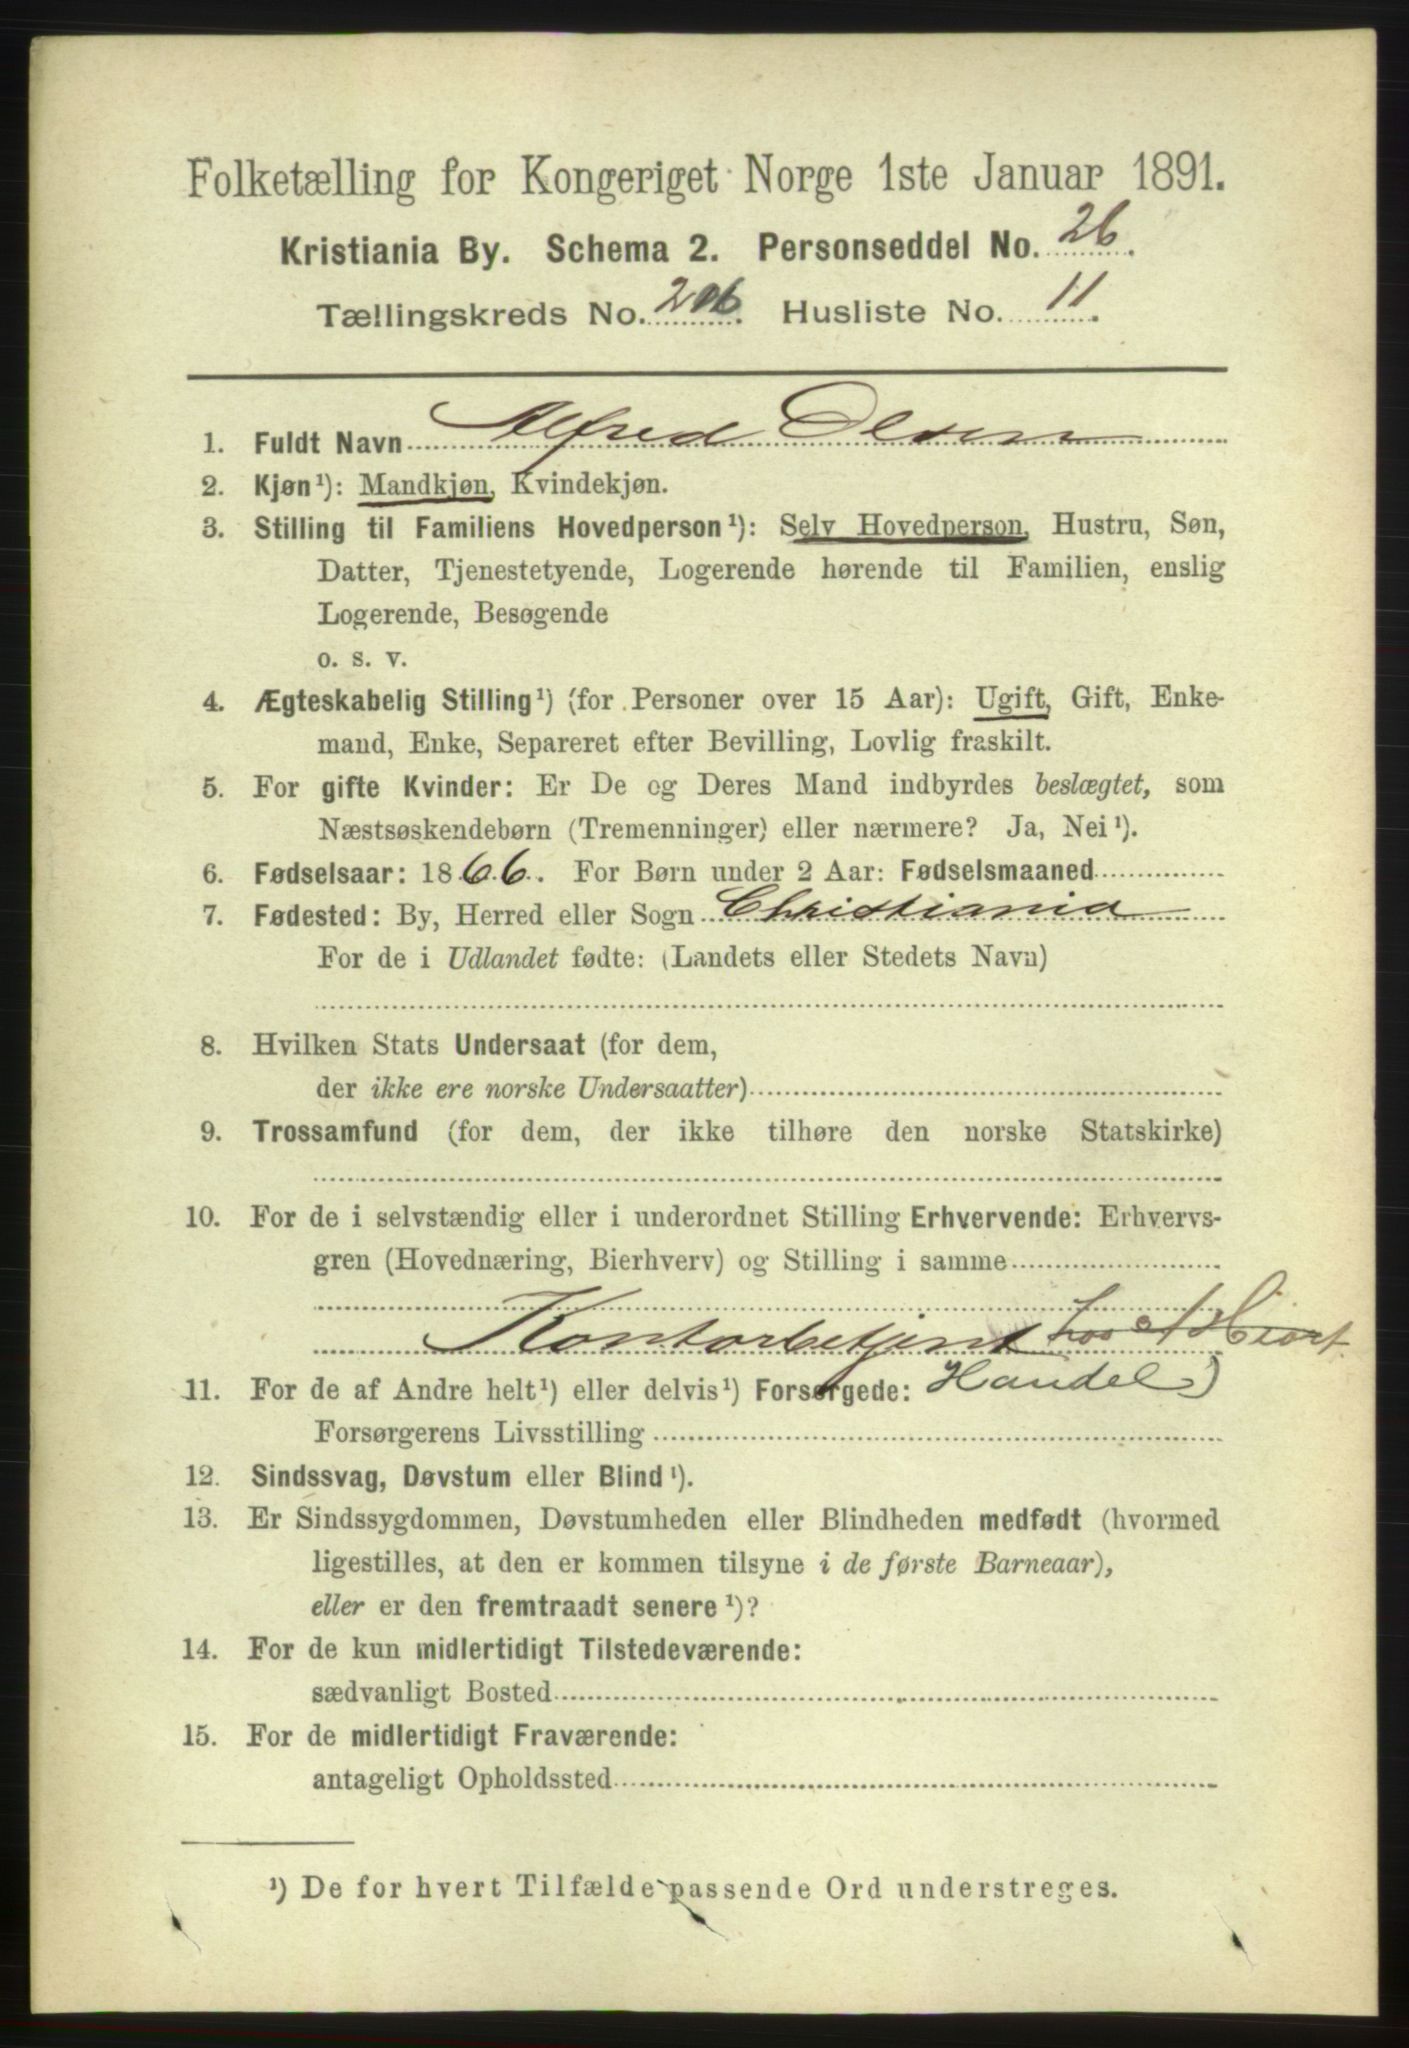 Folketælling for Kongeriget Norge 1ste Januar 1891.
Kristiania By. Schema 2. Personseddel No. 26.
Tællingskreds No. 206. Husliste No. 11.
1. Fuldt Navn Alfred Olsen
2. Kjøn¹): Mandkjøn, Kvindekjøn.
3. Stilling til Familiens Hovedperson¹): Selv Hovedperson, Hustru, Søn,
Datter, Tjenestetyende, Logerende hørende til Familien, enslig
Logerende, Besøgende
o. s. v.
4. Ægteskabelig Stilling¹) (for Personer over 15 Aar): Ugift, Gift, Enke-
mand, Enke, Separeret efter Bevilling, Lovlig fraskilt.
5. For gifte Kvinder: Er De og Deres Mand indbyrdes beslægtet, som
Næstsøskendebørn (Tremenninger) eller nærmere? Ja, Nei¹).
6. Fødselsaar: 1866. For Børn under 2 Aar: Fødselsmaaned
7. Fødested: By, Herred eller Sogn Christiania
For de i Udlandet fødte: (Landets eller Stedets Navn)
8. Hvilken Stats Undersaat (for dem,
der ikke ere norske Undersaatter)
9. Trossamfund (for dem, der ikke tilhøre den norske Statskirke)
10. For de i selvstændig eller i underordnet Stilling Erhvervende: Erhvervs-
gren (Hovednæring, Bierhverv) og Stilling i samme
Kontorbetjent hos A Hiort
11. For de af Andre helt¹) eller delvis¹) Forsørgede: Handel)
Forsørgerens Livsstilling
12. Sindssvag, Døvstum eller Blind¹).
13. Er Sindssygdommen, Døvstumheden eller Blindheden medfødt (hvormed
ligestilles, at den er kommen tilsyne i de første Barneaar),
eller er den fremtraadt senere¹)?
14. For de kun midlertidigt Tilstedeværende:
sædvanligt Bosted
15. For de midlertidigt Fraværende:
antageligt Opholdssted
¹) De for hvert Tilfælde passende Ord understreges.